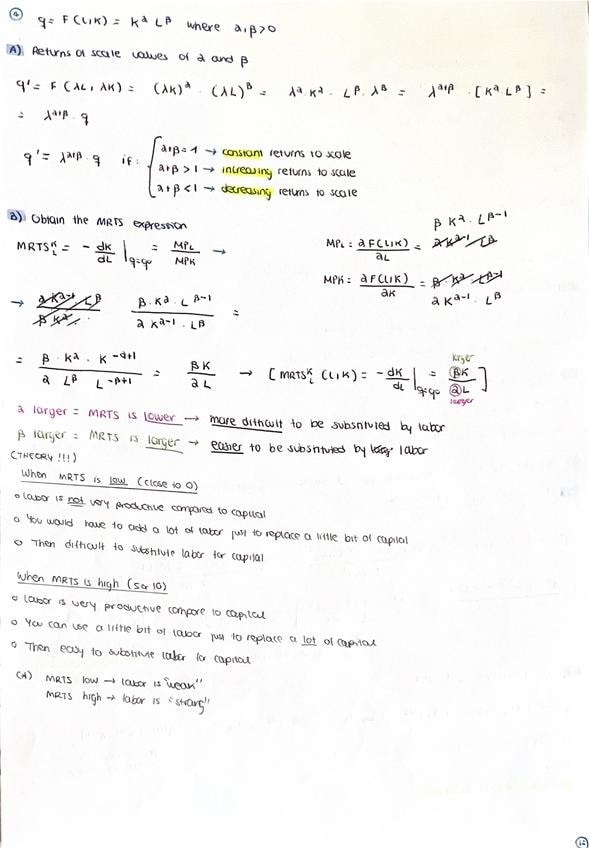 ④ q = F(L,K) = K^α L^β where α,β>0
A) Returns of scale values of α and β
q' = F(λL, λK) = (λK)^α · (λL)^β = λ^α · K^α · L^β · λ^β = λ^α+β · [K^α · L^β] =
= λ^α+β · q
q' = λ^α+β · q if: { α+β = 1 → constant returns to scale
α+β > 1 → increasing returns to scale
α+β < 1 → decreasing returns to scale
B) Obtain the MRTS expression
MRTS^K_L = - dK/dL |q=q0 = MPL/MPK →
MPL = ∂F(L,K)/∂L = α K^α-1 L^β β K^α · L^β-1
MPK = ∂F(L,K)/∂K = β · K^α · L^β-1 α K^α-1 · L^β
→ α K^α-1 L^β / β K^α β · K^α · L^β-1 / α K^α-1 · L^β =
= β · K^α · K^-α+1 / α L^β L^-β+1 = βK / αL → [MRTS^K_L (L,K) = - dK/dL |q=q0 = βK / αL]
larger
larger
α larger = MRTS is lower → more difficult to be substituted by labor
β larger = MRTS is larger → easier to be substituted by labor
(THEORY !!!)
When MRTS is low (close to 0)
o Labor is not very productive compared to capital
o You would have to add a lot of labor just to replace a little bit of capital
o Then difficult to substitute labor for capital
When MRTS is high (5 or 10)
o Labor is very productive compare to capital
o You can use a little bit of labor just to replace a lot of capital
o Then easy to substitute labor for capital
MRTS low → labor is "weak"
MRTS high → labor is "strong"